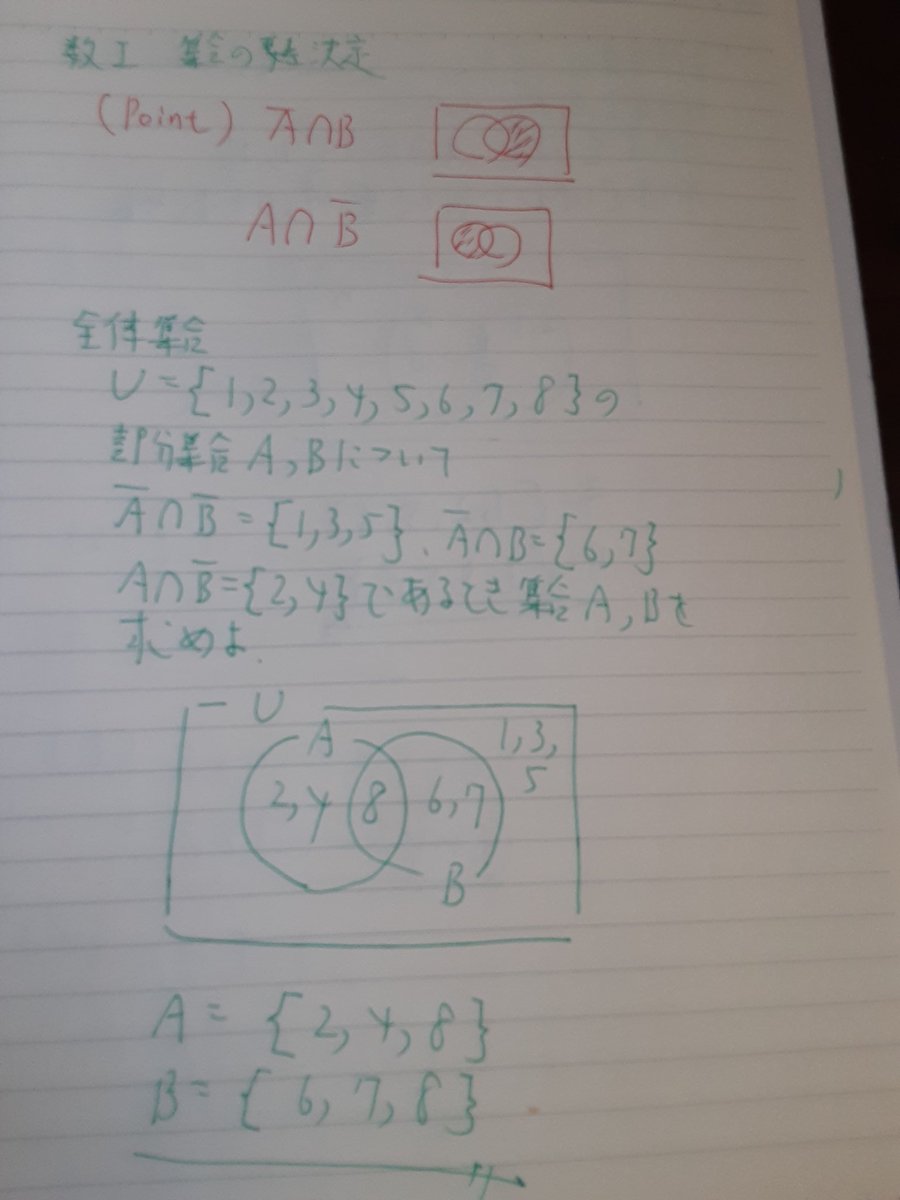 数I 集合の要素決定
(Point) A̅∩B
A∩B̅
全体集合
U={1,2,3,4,5,6,7,8}の
部分集合A,Bについて
A̅∩B̅={1,3,5}、A̅∩B={6,7}
A∩B̅={2,4}であるとき集合A,Bを
求めよ.
U
A
1,3,
5
2,4 8 6,7
B
A={2,4,8}
B={6,7,8}